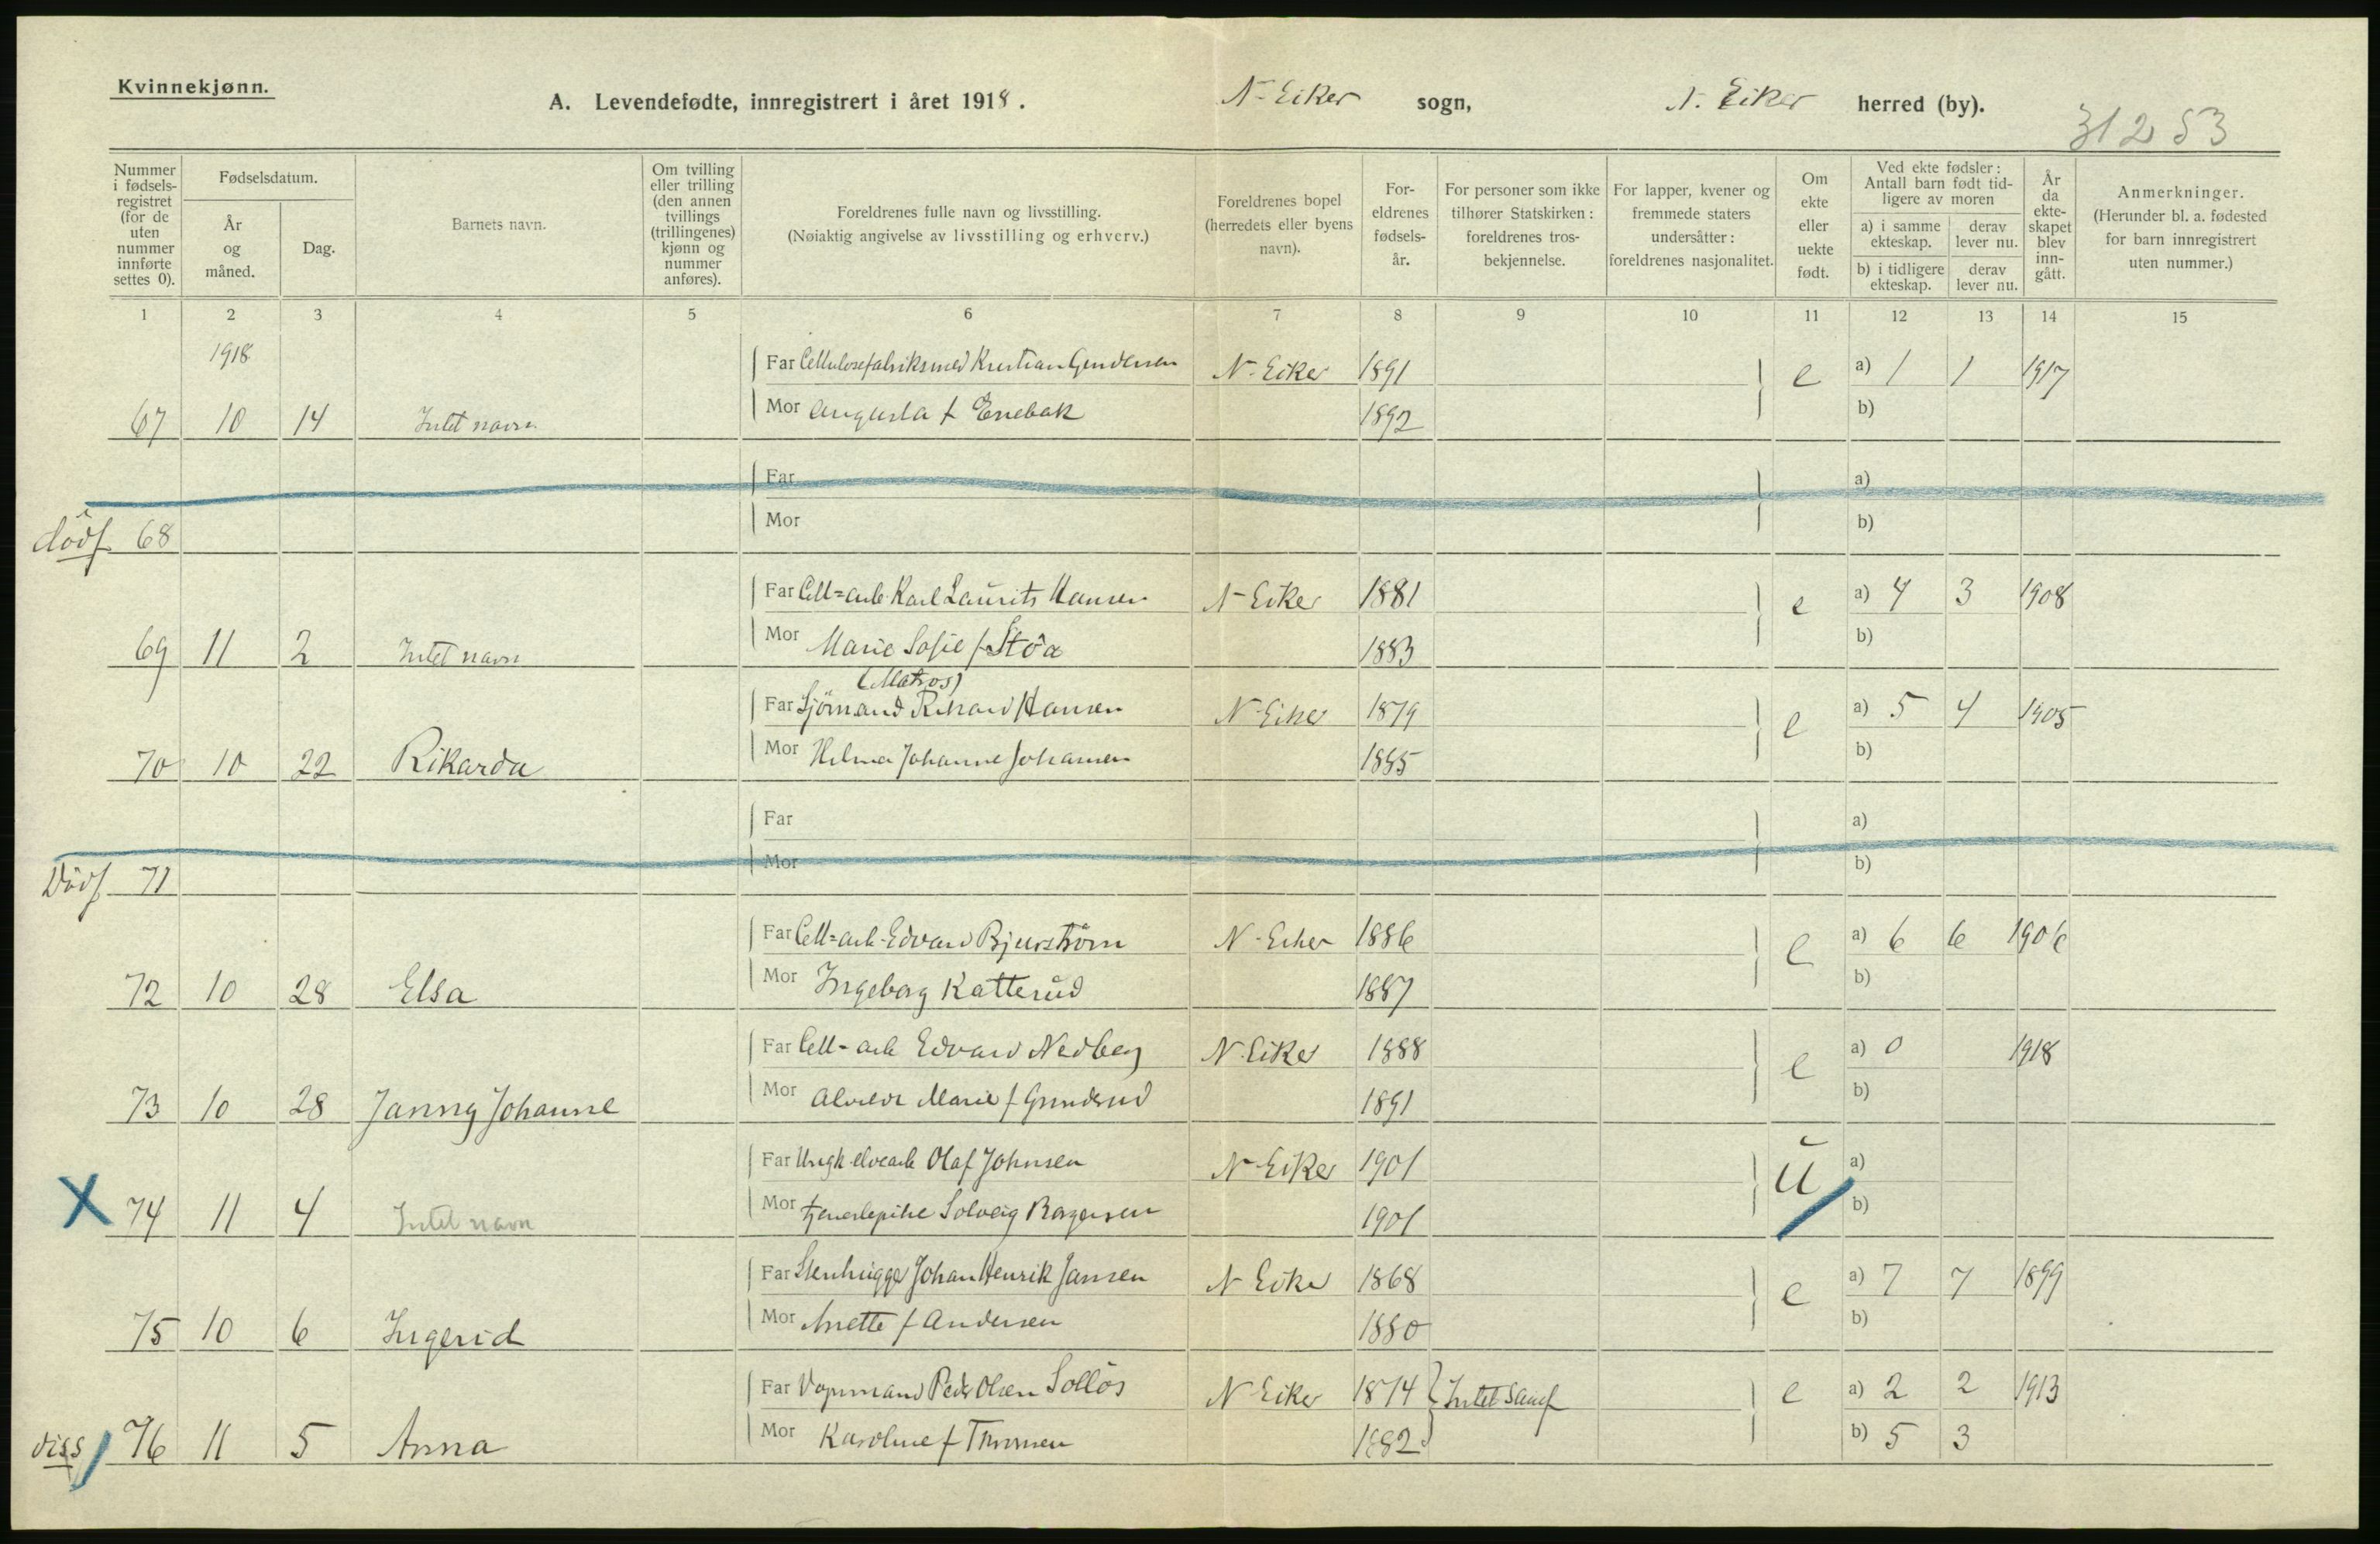 Kvinnekjønn.
A. Levendefødte, innregistrert i året 1918.
N-Eiker sogn, N. Eiker herred (by).
31253
Nummer i fødselsregistret (for de uten nummer innførte settes 0).
Fødselsdatum.
År og måned.
Dag.
Barnets navn.
Om tvilling eller trilling (den annen tvillings (trillingenes) kjønn og nummer anføres).
Foreldrenes fulle navn og livsstilling.
(Nøiaktig angivelse av livsstilling og erhverv.)
Foreldrenes bopel (herredets eller byens navn).
Foreldrenes fødselsår.
For personer som ikke tilhører Statskirken: foreldrenes trosbekjennelse.
For lapper, kvener og fremmede staters undersåtter: foreldrenes nasjonalitet.
Om ekte eller uekte født.
Ved ekte fødsler: Antall barn født tidligere av moren
a) i samme ekteskap.
derav lever nu.
b) i tidligere ekteskap.
derav lever nu.
År da ekteskapet blev inngått.
Anmerkninger.
(Herunder bl. a. fødested for barn innregistrert uten nummer.)
1 2 3 4 5 6 7 8 9 10 11 12 13 14 15
1918
Far Cellulosefabriksmed Kristian Gundersen N-Eiker 1891 e a) 1 1 1917
67 10 14 Intet navn Mor Augusta f Enebak 1892 b)
Far a)
dödf 68 Mor b)
Far Cell=arb. Karl Laurits Hansen N-Eiker 1881 e a) 4 3 1908
69 11 2 Intet navn Mor Marie Sofie f Stöa 1883 b)
(Matros)
Far Sjömand Rikard Hansen N-Eiker 1879 e a) 5 4 1905
70 10 22 Rikarda Mor Helma Johanne Johansen 1885 b)
Far a)
Dödf 71 Mor b)
Far Cell=arb. Edvard Bjurström N-Eiker 1886 e a) 6 6 1906
72 10 28 Elsa Mor Ingeborg Katterud 1887 b)
Far Cell-arb Edvard Nedberg N-Eiker 1888 e a) 0 1918
73 10 28 Janny Johanne Mor Marie f Gunderud 1891 b)
Far Ungk. elvearb Olaf Johnsen N-Eiker 1901 u a)
X 74 11 4 Intet navn Mor tjenestepike Solveig Borgersen 1901 b)
Far Stenhugger Johan Henrik Jansen N Eiker 1868 e a) 7 7 1899
75 10 6 Ingerid Mor Anette f Andersen 1880 b)
Far Vognmand Peder Olsen Sollös N-Eiker 1874 Intet samf e a) 2 2 1913
diss 76 11 5 Anna Mor Karoline f 1882 b) 5 3